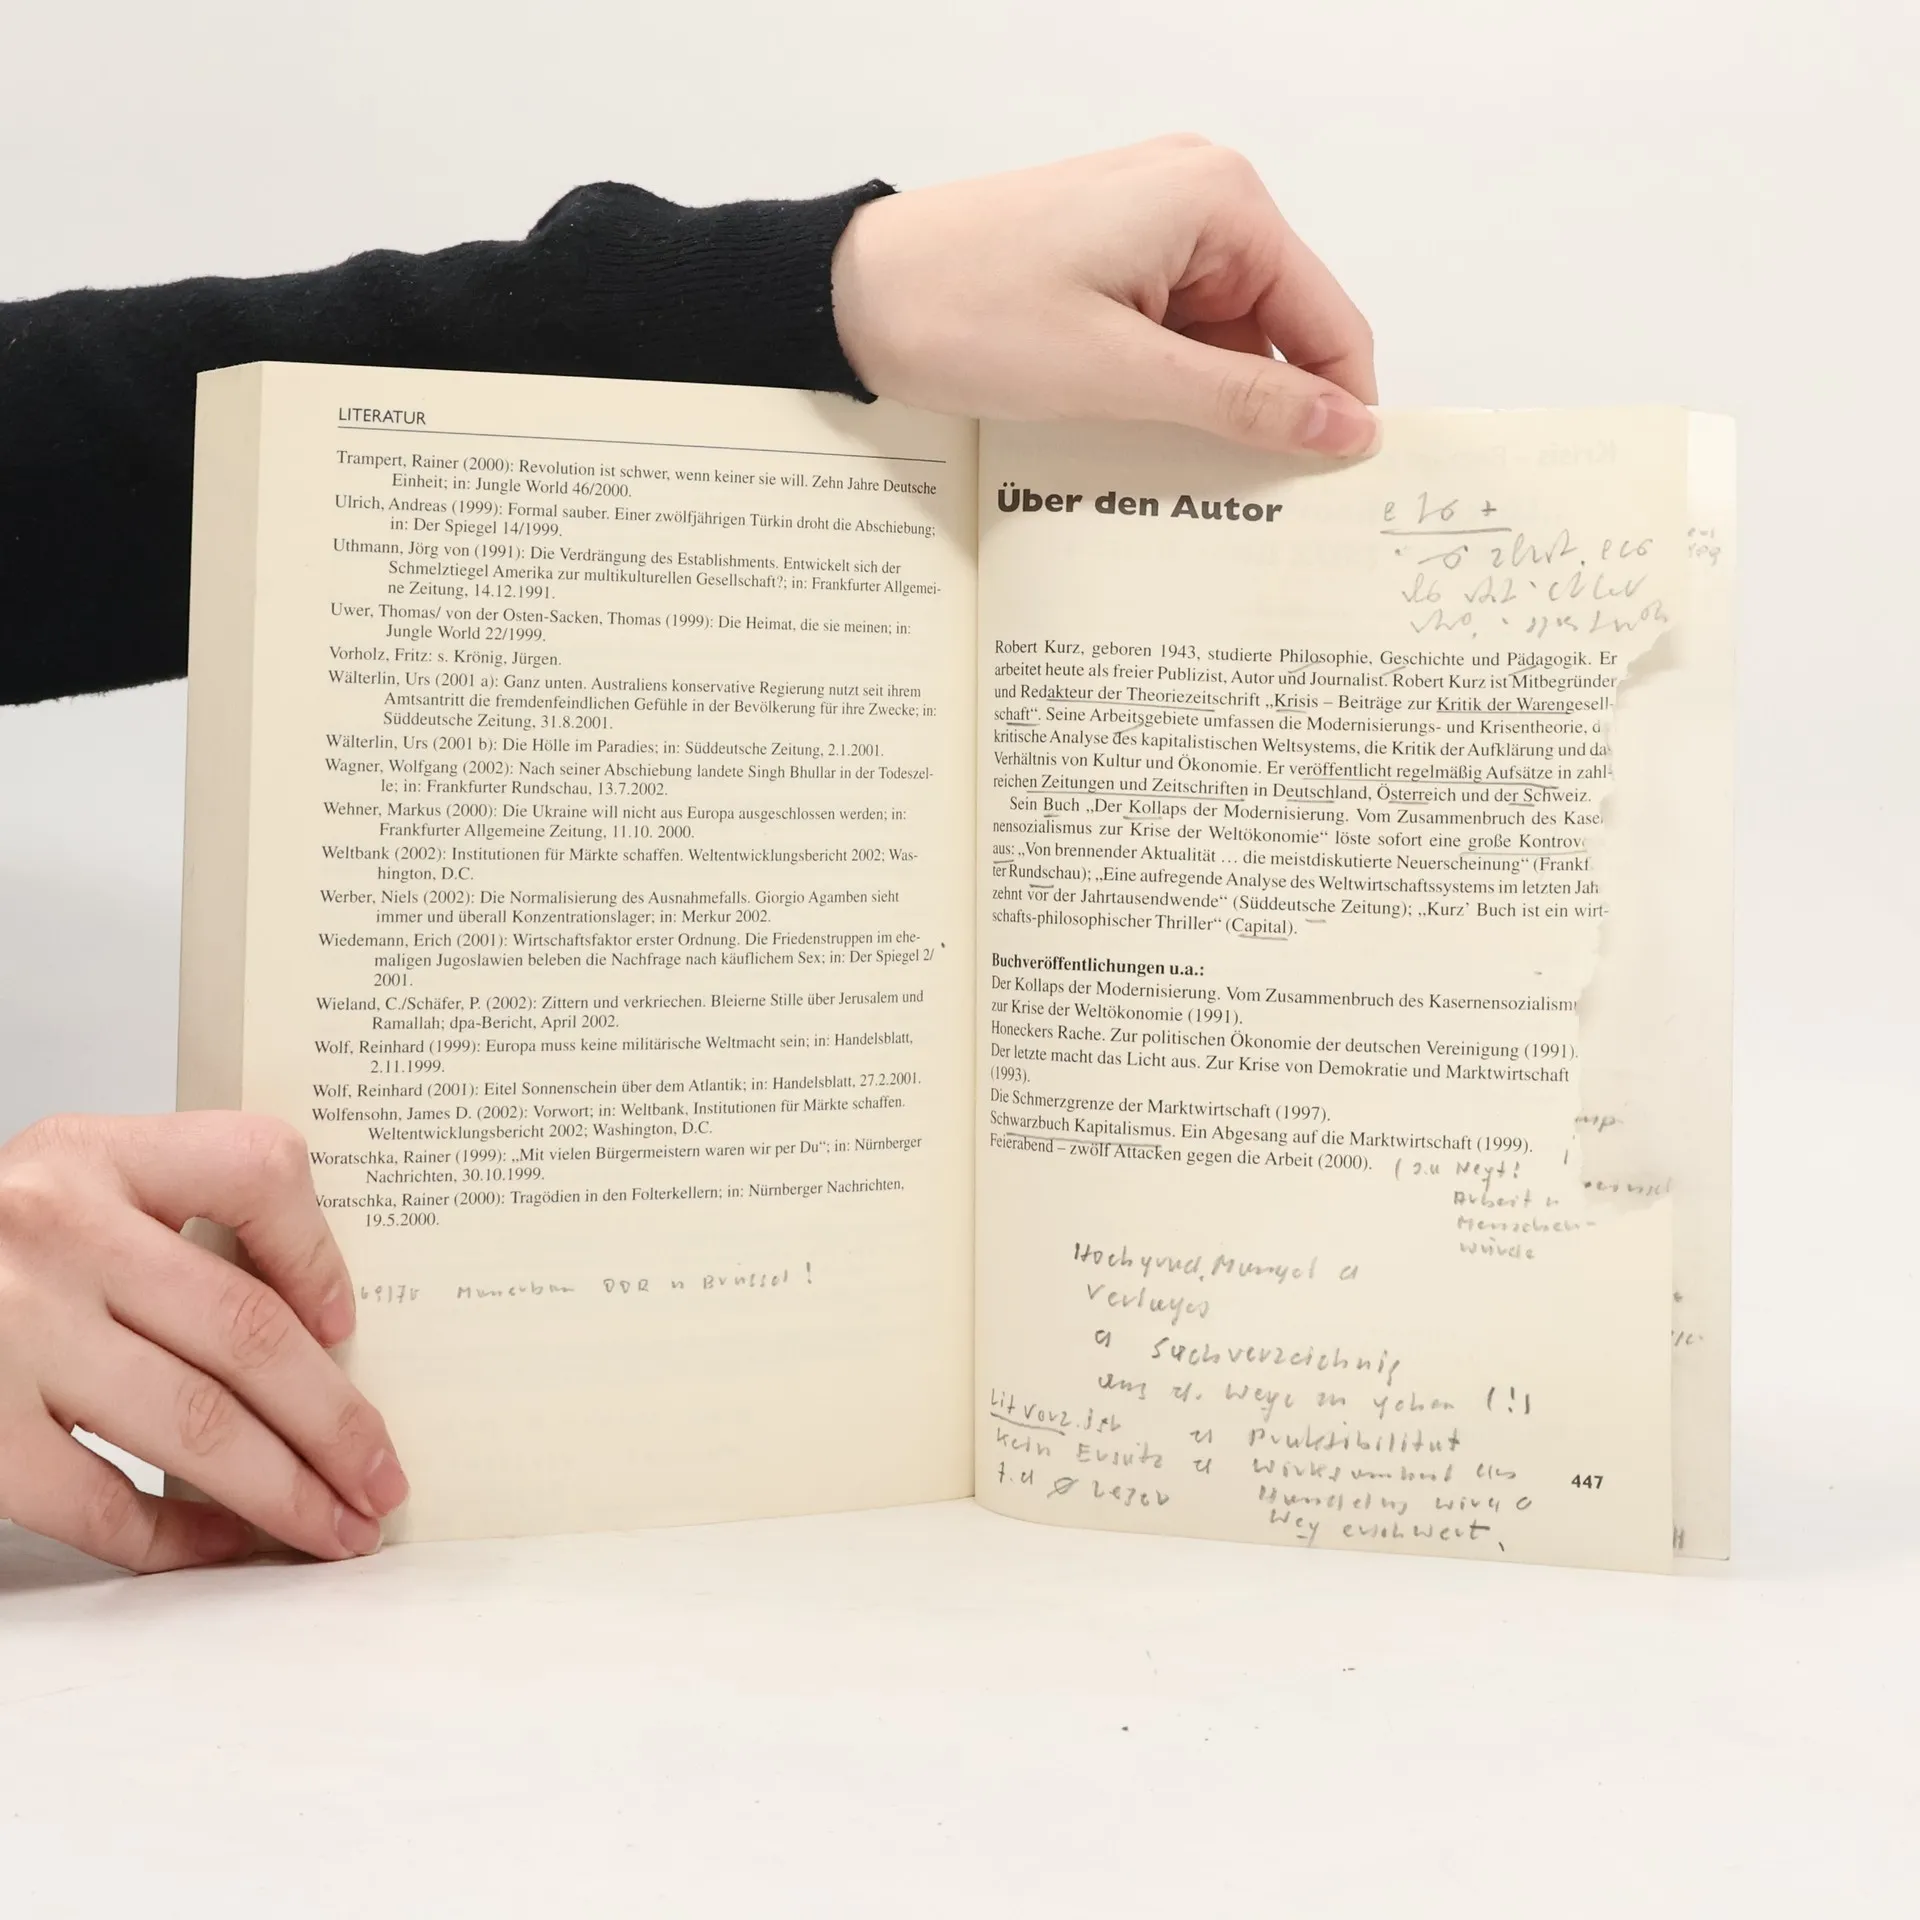 LITERATUR
Trampert, Rainer (2000): Revolution ist schwer, wenn keiner sie will. Zehn Jahre Deutsche
Einheit; in: Jungle World 46/2000.
Ulrich, Andreas (1999): Formal sauber. Einer zwölfjährigen Türkin droht die Abschiebung;
in: Der Spiegel 14/1999.
Uthmann, Jörg von (1991): Die Verdrängung des Establishments. Entwickelt sich der
Schmelztiegel Amerika zur multikulturellen Gesellschaft?; in: Frankfurter Allgemei-
ne Zeitung, 14.12.1991.
Uwer, Thomas/ von der Osten-Sacken, Thomas (1999): Die Heimat, die sie meinen; in:
Jungle World 22/1999.
Vorholz, Fritz: s. Krönig, Jürgen.
Wälterlin, Urs (2001 a): Ganz unten. Australiens konservative Regierung nutzt seit ihrem
Amtsantritt die fremdenfeindlichen Gefühle in der Bevölkerung für ihre Zwecke; in:
Süddeutsche Zeitung, 31.8.2001.
Wälterlin, Urs (2001 b): Die Hölle im Paradies; in: Süddeutsche Zeitung, 2.1.2001.
Wagner, Wolfgang (2002): Nach seiner Abschiebung landete Singh Bhullar in der Todeszel-
le; in: Frankfurter Rundschau, 13.7.2002.
Wehner, Markus (2000): Die Ukraine will nicht aus Europa ausgeschlossen werden; in:
Frankfurter Allgemeine Zeitung, 11.10. 2000.
Weltbank (2002): Institutionen für Märkte schaffen. Weltentwicklungsbericht 2002; Was-
hington, D.C.
Werber, Niels (2002): Die Normalisierung des Ausnahmefalls. Giorgio Agamben sieht
immer und überall Konzentrationslager; in: Merkur 2002.
Wiedemann, Erich (2001): Wirtschaftsfaktor erster Ordnung. Die Friedenstruppen im ehe-
maligen Jugoslawien beleben die Nachfrage nach käuflichem Sex; in: Der Spiegel 2/
2001.
Wieland, C./Schäfer, P. (2002): Zittern und verkriechen. Bleierne Stille über Jerusalem und
Ramallah; dpa-Bericht, April 2002.
Wolf, Reinhard (1999): Europa muss keine militärische Weltmacht sein; in: Handelsblatt,
2.11.1999.
Wolf, Reinhard (2001): Eitel Sonnenschein über dem Atlantik; in: Handelsblatt, 27.2.2001.
Wolfensohn, James D. (2002): Vorwort; in: Weltbank, Institutionen für Märkte schaffen.
Weltentwicklungsbericht 2002; Washington, D.C.
Woratschka, Rainer (1999): „Mit vielen Bürgermeistern waren wir per Du“; in: Nürnberger
Nachrichten, 30.10.1999.
Woratschka, Rainer (2000): Tragödien in den Folterkellern; in: Nürnberger Nachrichten,
19.5.2000.
DDR Brüssel!
Über den Autor
Robert Kurz, geboren 1943, studierte Philosophie, Geschichte und Pädagogik. Er
arbeitet heute als freier Publizist, Autor und Journalist. Robert Kurz ist Mitbegründer
und Redakteur der Theoriezeitschrift „Krisis – Beiträge zur Kritik der Warengesell-
schaft“. Seine Arbeitsgebiete umfassen die Modernisierungs- und Krisentheorie, d
kritische Analyse des kapitalistischen Weltsystems, die Kritik der Aufklärung und da
Verhältnis von Kultur und Ökonomie. Er veröffentlicht regelmäßig Aufsätze in zahl-
reichen Zeitungen und Zeitschriften in Deutschland, Österreich und der Schweiz.
Sein Buch „Der Kollaps der Modernisierung. Vom Zusammenbruch des Kaser
nensozialismus zur Krise der Weltökonomie“ löste sofort eine große Kontrov
aus: „Von brennender Aktualität … die meistdiskutierte Neuerscheinung“ (Frankf
ter Rundschau); „Eine aufregende Analyse des Weltwirtschaftssystems im letzten Jah
zehnt vor der Jahrtausendwende“ (Süddeutsche Zeitung); „Kurz’ Buch ist ein wirt-
schafts-philosophischer Thriller“ (Capital).
Buchveröffentlichungen u.a.:
Der Kollaps der Modernisierung. Vom Zusammenbruch des Kasernensozialism
zur Krise der Weltökonomie (1991).
Honeckers Rache. Zur politischen Ökonomie der deutschen Vereinigung (1991).
Der letzte macht das Licht aus. Zur Krise von Demokratie und Marktwirtschaft
(1993).
Die Schmerzgrenze der Marktwirtschaft (1997).
Schwarzbuch Kapitalismus. Ein Abgesang auf die Marktwirtschaft (1999).
Feierabend – zwölf Attacken gegen die Arbeit (2000).
Arbeit
Menschen-
würde
Verlages
Sachverzeichnis
aus d. Wege zu gehen (!)
Praktibilität
kein Ersatz
Leser
Weg erschwert.
447